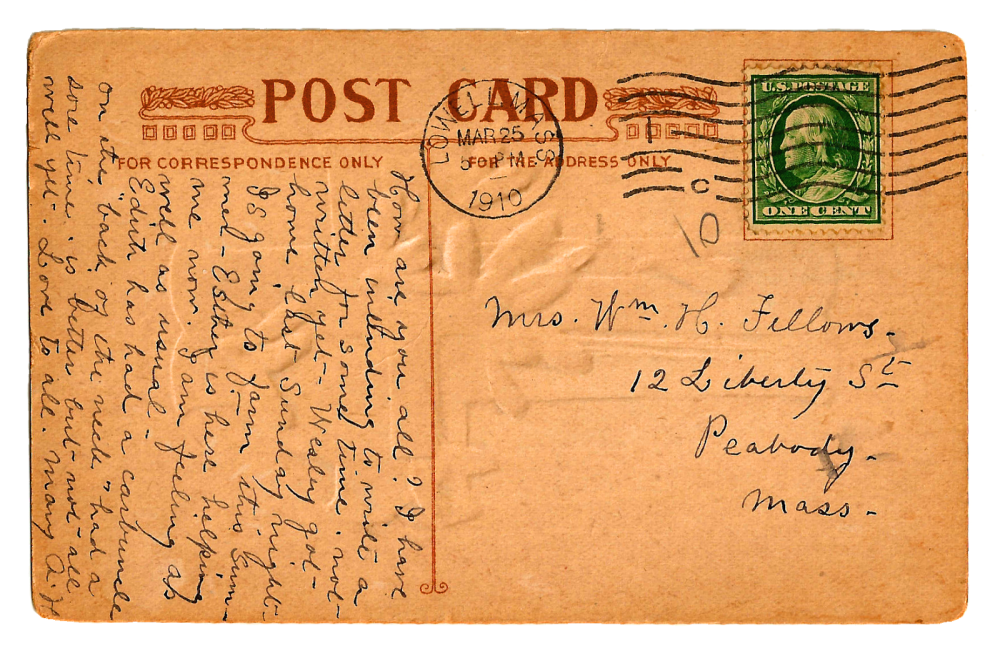 POST CARD
FOR CORRESPONDENCE ONLY
FOR THE ADDRESS ONLY
LOWELL, MASS.
MAR 25
PM
1910
1
C
10
U.S. POSTAGE
ONE CENT
Mrs. Wm. H. Fellows.
12 Liberty St
Peabody.
Mass.
How are you all? I have
been intending to write a
letter for some time. not
written yet - Wesley got
home last Sunday night -
Is going to farm it this Sum-
mer - Esther is here helping
me now. I am feeling as
well as usual -
Edith has had a carbuncle
on the back of the neck & had a
sore time. is better but not all
well yet. Love to all. Mary A. H